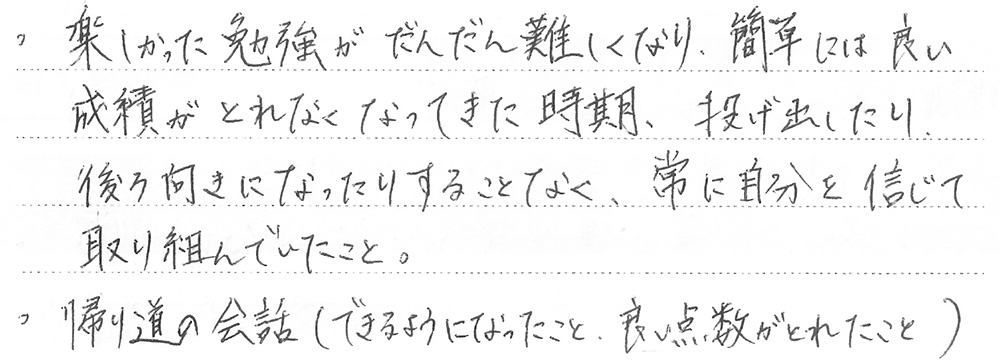 。楽しかった勉強がだんだん難しくなり、簡単には良い
成績がとれなくなってきた時期、投げ出したり、
後ろ向きになったりすることなく、常に自分を信じて
取り組んでいたこと。
。帰り道の会話(できるようになったこと、良い点数がとれたこと)